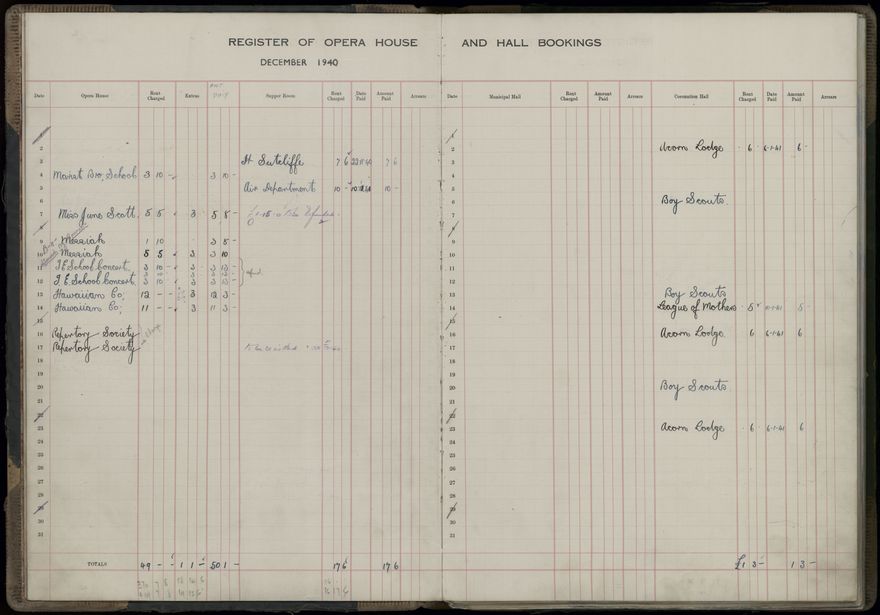 REGISTER OF OPERA HOUSE AND HALL BOOKINGS
DECEMBER 1940
Date Opera House Rent Charged Extras Supper Room Rent Charged Date Paid Amount Paid Arrears Date Municipal Hall Rent Charged Amount Paid Arrears Coronation Hall Rent Charged Date Paid Amount Paid Arrears
1 1
2 2 Acorn Lodge 6 6-1-41 6 -
3 H. Sutcliffe 7 6 7 6 3
4 School 3 10 - 3 10 - 4
5 Air Department 10 - 10 - 5
6 6 Boy Scouts
7 Miss June Scott 5 5 3 5 8 - 7
8 8
9 Messiah 1 10 9
10 Messiah 5 5 3 10
11 School Concert 3 10 3 3 13 - 11
12 School Concert 3 10 3 3 13 - 12
13 Hawaiian Co. 12 - - 3 12 3 - 13 Boy Scouts
14 Hawaiian Co. 11 - - 3 11 3 - 14 League of Mothers 5 5 -
15 15
16 Repertory Society 16 Acorn Lodge 6 6-1-41 6
17 Repertory Society 17
18 18
19 19
20 20 Boy Scouts
21 21
22 22
23 23 Acorn Lodge 6 6-1-41 6
24 24
25 25
26 26
27 27
28 28
29 29
30 30
31 31
TOTALS 49 - - 1 1 - 50 1 - 17 6 17 6 £1 3 - 1 3 -